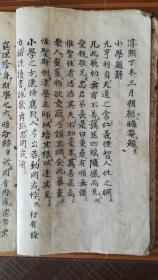 淳熙丁未三月朔朝晦菴題
小學題辭
元亨利貞天道之常仁義禮智人性之綱
凡此厥初無有不善藹然四端隨感而見
愛親敬兄忠君弟長是曰秉彝有順無彊
惟聖性者浩浩其天不加毫末萬善足焉
衆人蚩蚩物欲交蔽乃頹其綱安此暴棄
惟聖斯惻建學立師以培其根以達其枝
小學之方灑掃應對入孝出恭動罔或悖行有餘
力誦詩讀書詠歌舞蹈思罔或逾
窮理修身斯學之大明命赫然罔有內外德崇業